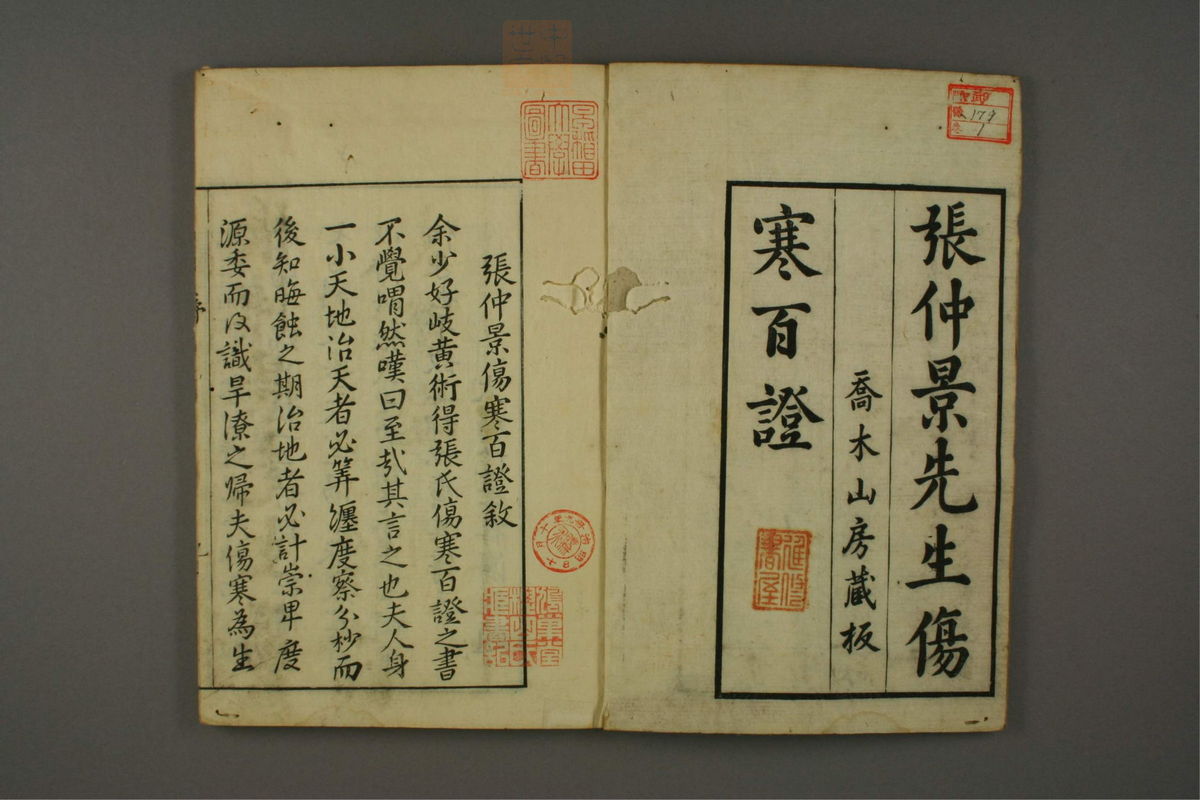 張仲景先生傷
喬木山房蔵板
寒百證
179
1
早稲田
大學
圖書
張仲景傷寒百證敘
余少好岐黄術得張氏傷寒百證之書
不覺喟然嘆曰至㢤其言之也夫人身
一小天地治天者必筭纏度察分杪而
後知晦蝕之期治地者必計崇卑度
源委而後識旱潦之歸夫傷寒為生
序